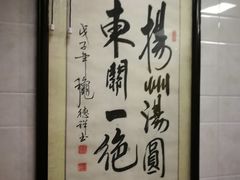 揚州湯圓
東關一絕
戊子年 德祥書